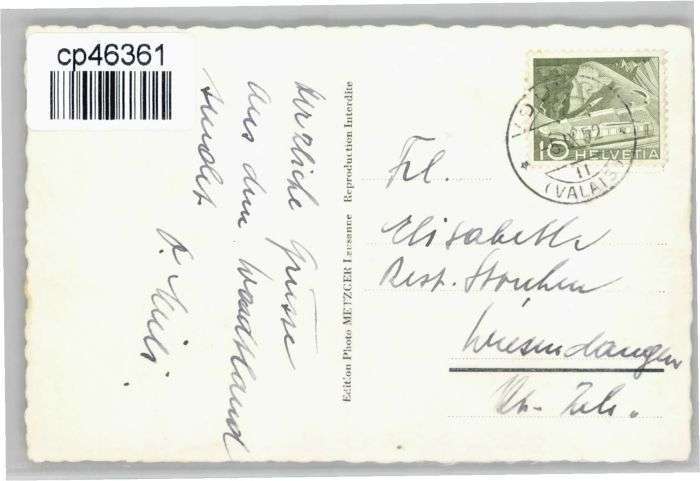 cp46361
Herzliche Grüsse
aus dem Waadtland
sendet
Edition Photo METZGER Lausanne Reproduction Interdite
10 HELVETIA
52
(VALAIS)
Frl.
Elisabeth
Rest. Storchen
Wiesendangen
Kt. Zch.